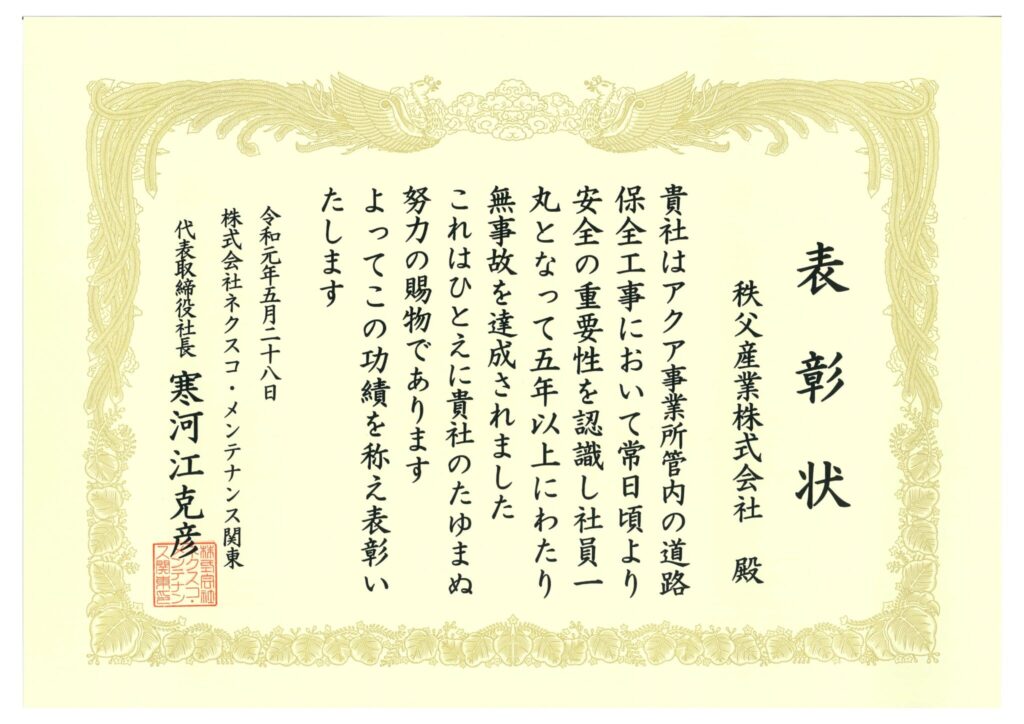 表彰状
秩父産業株式会社 殿
貴社はアクア事業所管内の道路
保全工事において常日頃より
安全の重要性を認識し社員一
丸となって五年以上にわたり
無事故を達成されました
これはひとえに貴社のたゆまぬ
努力の賜物であります
よってこの功績を称え表彰い
たします
令和元年五月二十八日
株式会社ネクスコ・メンテナンス関東
代表取締役社長 寒河江克彦
株式会社
ネクスコ・
メンテナン
ス関東印